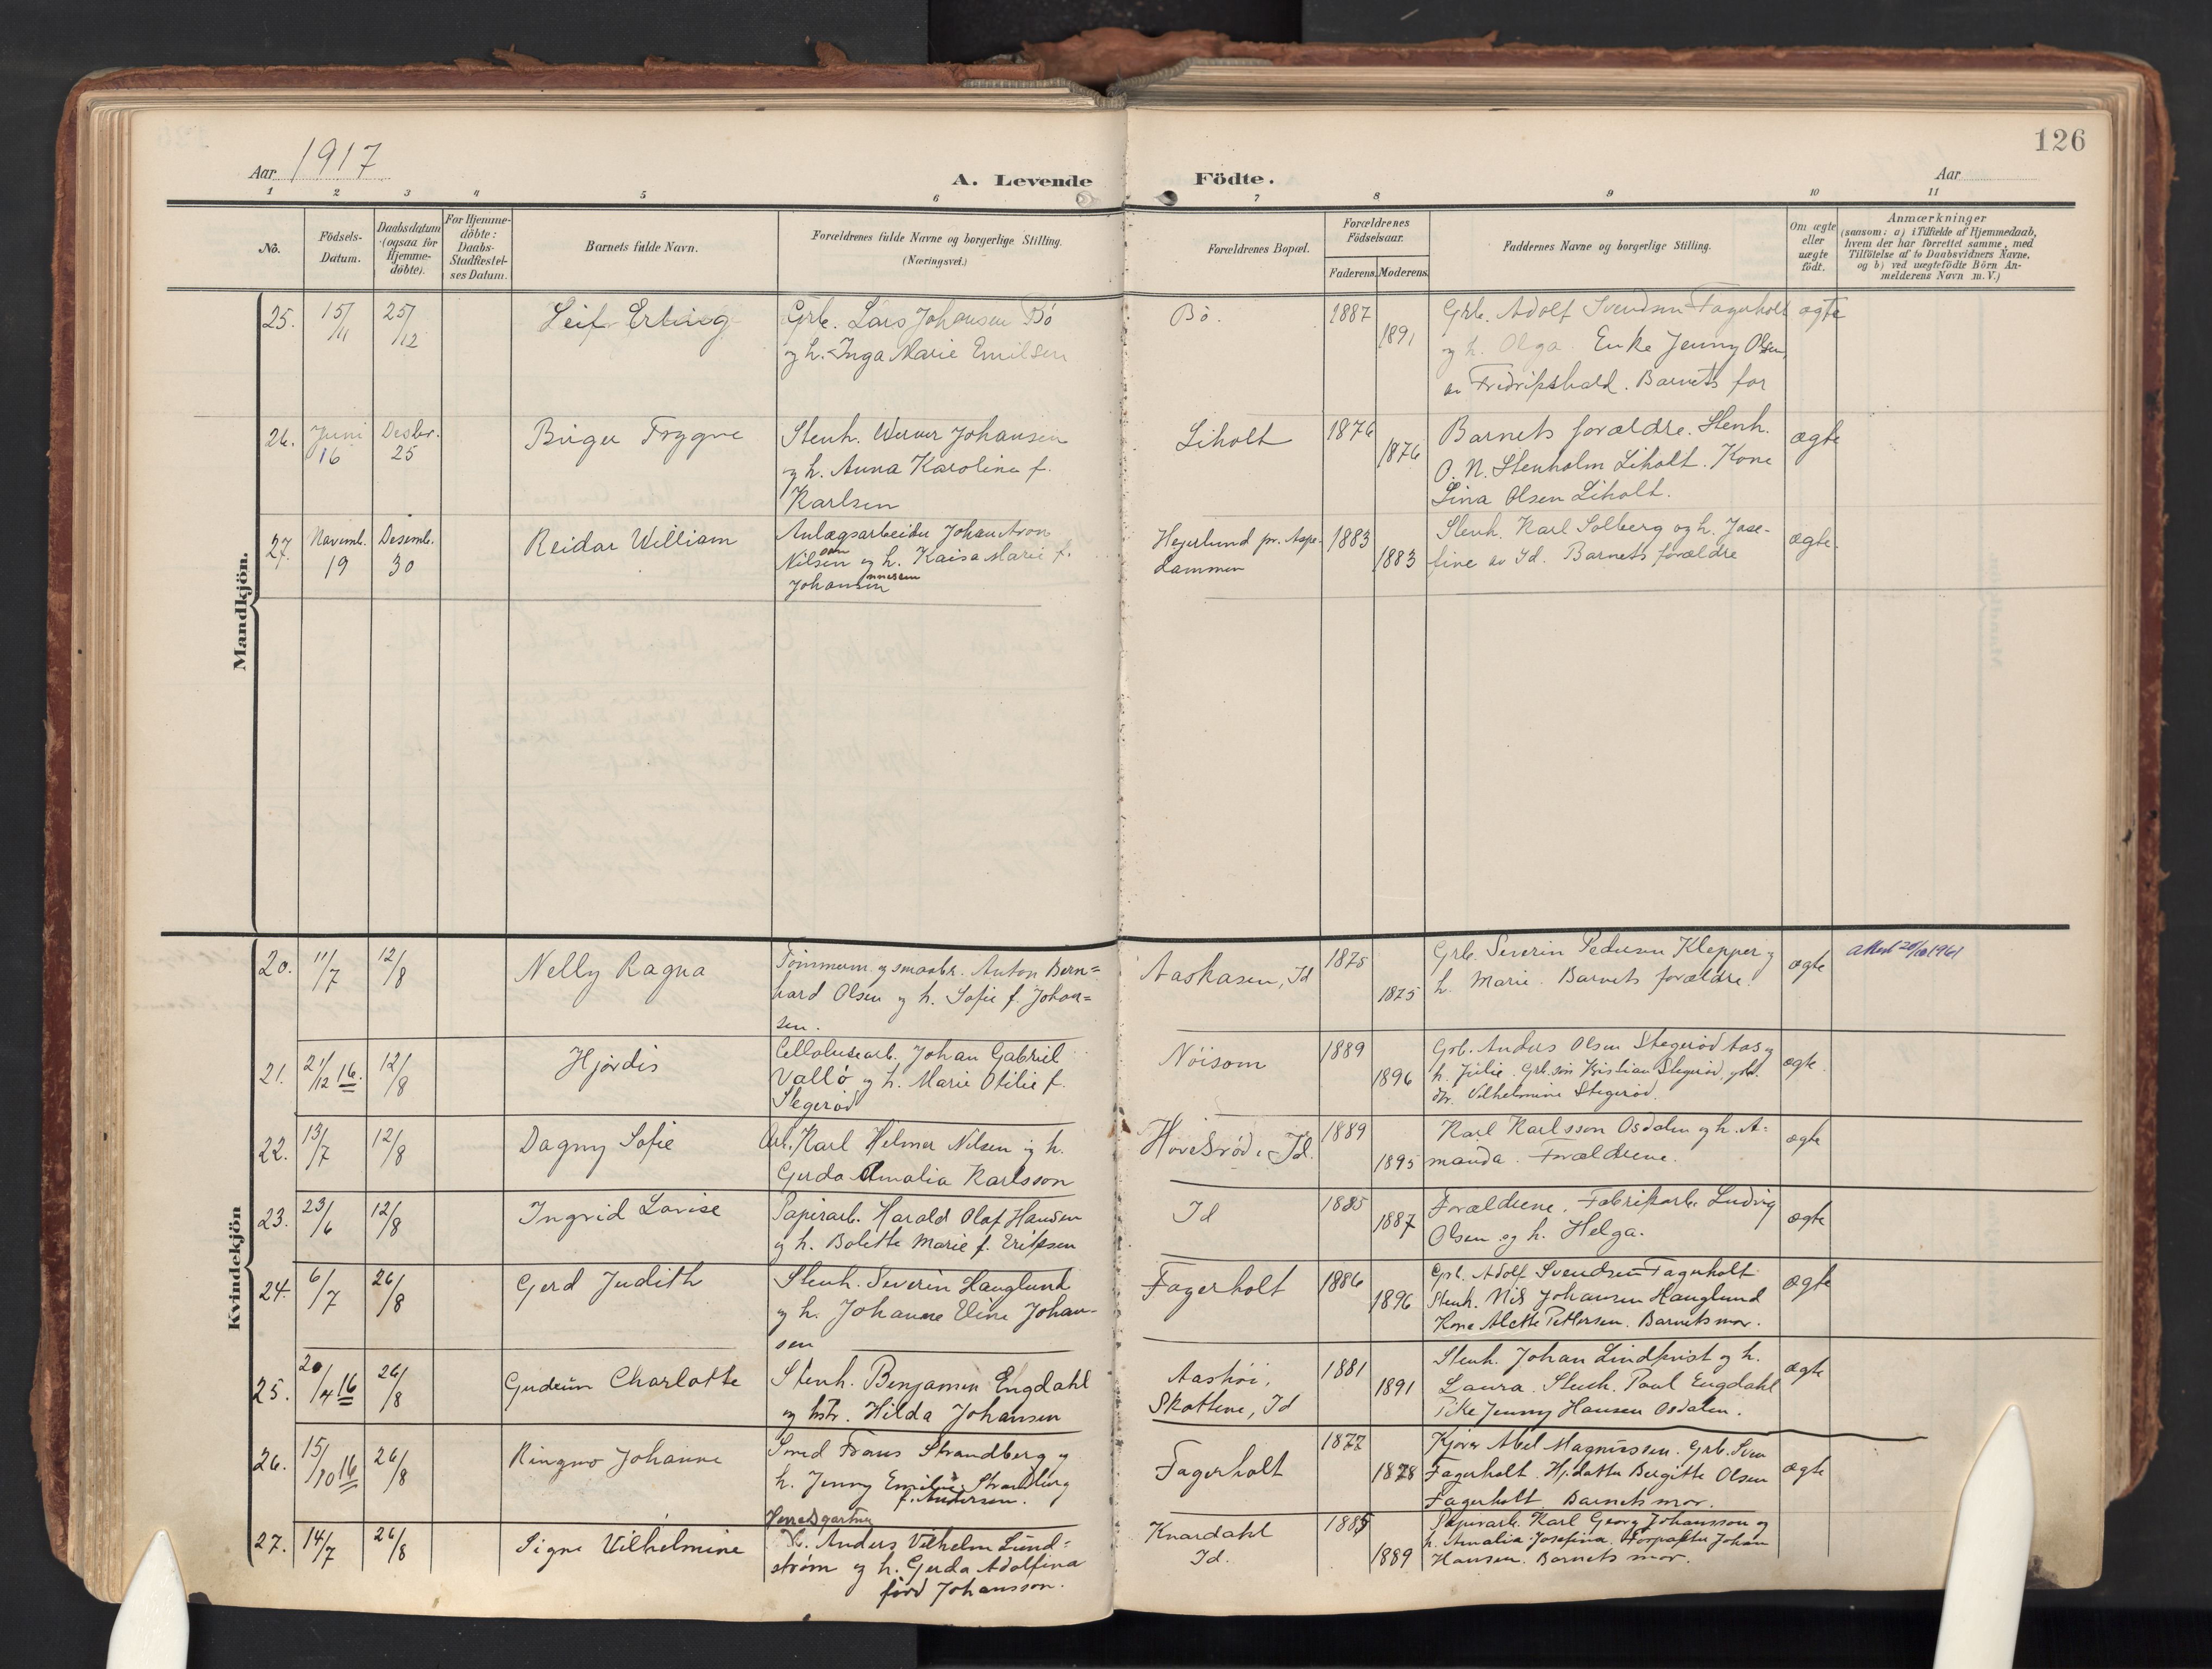 126
Aar 1917
A. Levende Födte.
Aar
1 2 3 4 5 6 7 8 9 10 11
No.
Födsels-
Datum.
Daabsdatum
(ogsaa for
Hjemme-
döbte).
For Hjemme-
döbte:
Daabs-
Stadfæstel-
ses Datum.
Barnets fulde Navn.
Forældrenes fulde Navne og borgerlige Stilling.
(Næringsvei.)
Forældrenes Bopæl.
Forældrenes
Födselsaar.
Faderens. Moderens.
Faddernes Navne og borgerlige Stilling.
Om ægte
eller
uægte
födt.
Anmærkninger
(saasom: a) i Tilfælde af Hjemmedaab,
hvem der har forrettet samme, med
Tilföielse af to Daabsvidners Navne,
og b) ved uægtefödte Börn An-
melderens Navn m. V.)
Mandkjön.
25. 15/11 25/12
Leif Erling
Grb. Lars Johansen Bö
og h. Inga Marie Emilsen
Bö.
1887
1891
Grb. Adolf Svendsen Fagerholt
og h. Olga. Enke Jenny Olsen,
av Fredrikshald. Barnets far
ægte
26. Juni
16
Desbr.
25
Birger Trygve
Stenh. Werner Johansen
og h. Anna Karolina f.
Karlsen
Liholt
1876
1876
Barnets forældre. Stenh.
O. N. Stenholm Liholt. Kone
Lina Olsen Liholt.
ægte
27. Novemb.
19
Desemb.
30
Reidar William
Anlægsarbeider Johan Aron
Nilsen og h. Kaisa Marie f.
Johansen
Hejerlund pr. Aspe-
dammen
1883
1883
Stenh. Karl Solberg og h. Jose-
fine av Id. Barnets forældre
ægte.
Kvindekjön
20. 11/7 12/8
Nelly Ragna
Tömmerm. og smaabr. Anton Bern=
hard Olsen og h. Sofie f. Johan=
sen.
Aaskasen, Id
1875
1875
Grb. Severin Pedersen Klepper og
h. Marie. Barnets forældre.
ægte
Attest 20/10 1961
21. 21/12 16. 12/8
Hjördis
Cellulosearb. Johan Gabriel
Vallö og h. Marie Otilie f.
Stegeröd
Nöisom
1889
1896
Grb. Anders Olsen Stegeröd Aas og
h. Julie. Grb. sön Kristian Stegeröd, grb.
dtr. Vilhelmine Stegeröd.
ægte.
22. 13/7 12/8
Dagny Sofie
Arb. Karl Helmer Nilsen og h.
Gerda Amalia Karlsson
Hovelsröd i Id.
1889
1895
Karl Karlsson Osdalen og h. A=
manda. Forældrene.
ægte
23. 23/6 12/8
Ingrid Lovise
Papirarb. Harald Olaf Hansen
og h. Bolette Marie f. Eriksen
Id
1885
1887
Forældrene. Fabrikarb. Ludvig
Olsen og h. Helga.
ægte
24. 6/7 26/8
Gerd Judith
Stenh. Severin Hauglund
og h. Johanne Eline Johan-
sen
Fagerholt
1886
1896
Grb. Adolf Svendsen Fagerholt
Stenh. Nils Johansen Hauglund
Kone Alette Pettersen. Barnets mor.
ægte
25. 20/4 16 26/8
Gudrun Charlotte
Stenh. Benjamin Engdahl
og hstr. Hilda Johansen
Aashöi,
Skottene, Id
1881
1891
Stenh. Johan Lindkvist og h.
Laura. Stenh. Paul Engdahl
Pike Jenny Hansen Osdalen.
ægte
26. 15/10 16 26/8
Ringmo Johanne
Smed Frans Strandberg og
h. Jenny Emilie Strandberg
f. Andersen.
Fagerholt
1877
1878
Kjörer Abel Magnussen. Grb. Sven
Fagerholt. Hj. datter Bergitte Olsen
Fagerholt. Barnets mor.
ægte
27. 14/7 26/8
Signe Vilhelmine
Herredsgartner
Anders Vilhelm Lund=
ström og h. Gerda Adolfina
född Johansson.
Knardahl
Id.
1885
1889
Papirarb. Karl Georg Johansson og
h. Amalia Josefina. Forpakter Johan
Hansen. Barnets mor.